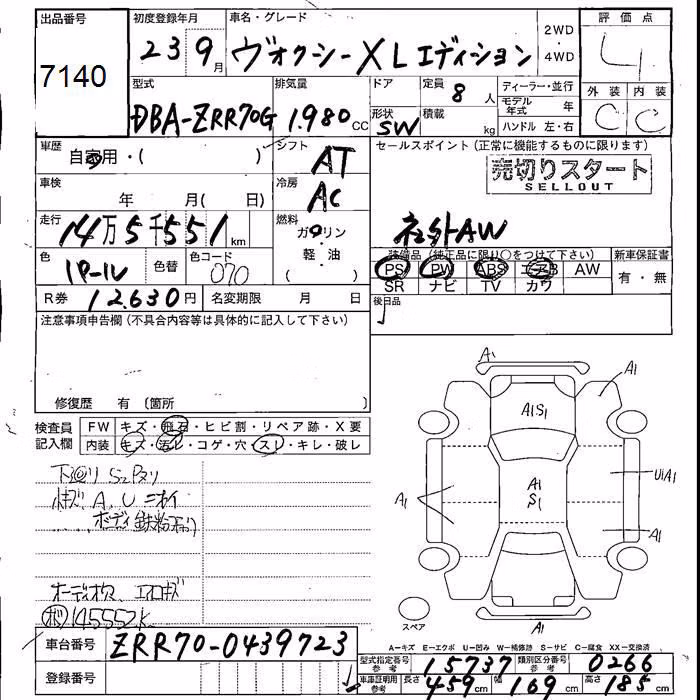 出品番号
7140
初度登録年月
23 9月
車名・グレード
ヴォクシーXLエディション
2WD
・
4WD
評価点
4
外装 内装
C C
型式
DBA-ZRR70G
排気量
1.980cc
ドア
形状
SW
定員
8人
積載
kg
ディーラー・並行
モデル年式 年
ハンドル 左・右
車歴
自家用・( )
シフト
AT
車検
年 月( 日)
冷房
AC
走行
14万5千551km
燃料
ガソリン
・
軽・油
( )
色
色替
色コード
070
R券 12.630円
名変期限 月 日
セールスポイント(正常に機能するものに限ります)
売切りスタート
SELLOUT
社外AW
装備品(純正品に限り○をつけて下さい)
PS PW ABS エアB AW
SR ナビ TV カワ
新車保証書
有・無
後日品
注意事項申告欄(不具合内容等は具体的に記入して下さい)
修復歴 有(箇所 )
検査員記入欄
FW キズ・飛石・ヒビ割・リペア跡・X要
内装 キズ・汚レ・コゲ・穴・スレ・キレ・破レ
下廻り
A,U
ボディ鉄粉
145552k
A1
A1
A1S1
A1
S1
A1
UiA1
A1
A1
スペア
A=キズ E=エクボ U=凹み W=補修跡 S=サビ C=腐食 XX=交換済
車台番号 ZRR70-0439723
登録番号
型式指定番号 参考 15737
類別区分番号 参考 0266
車庫証明用 参考 長さ459cm 幅169cm 高さ185cm